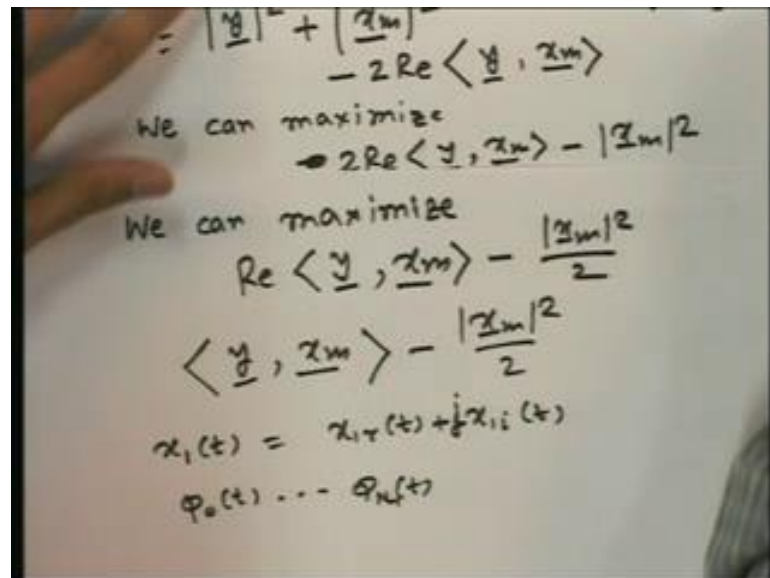 = |y|² + |xm|²
- 2Re < y , xm >
We can maximize
2Re < y , xm > - |xm|²
We can maximize
Re < y , xm > - |xm|²/2
< y , xm > - |xm|²/2
x₁(t) = x₁r(t) + jx₁i(t)
φ₀(t) ...